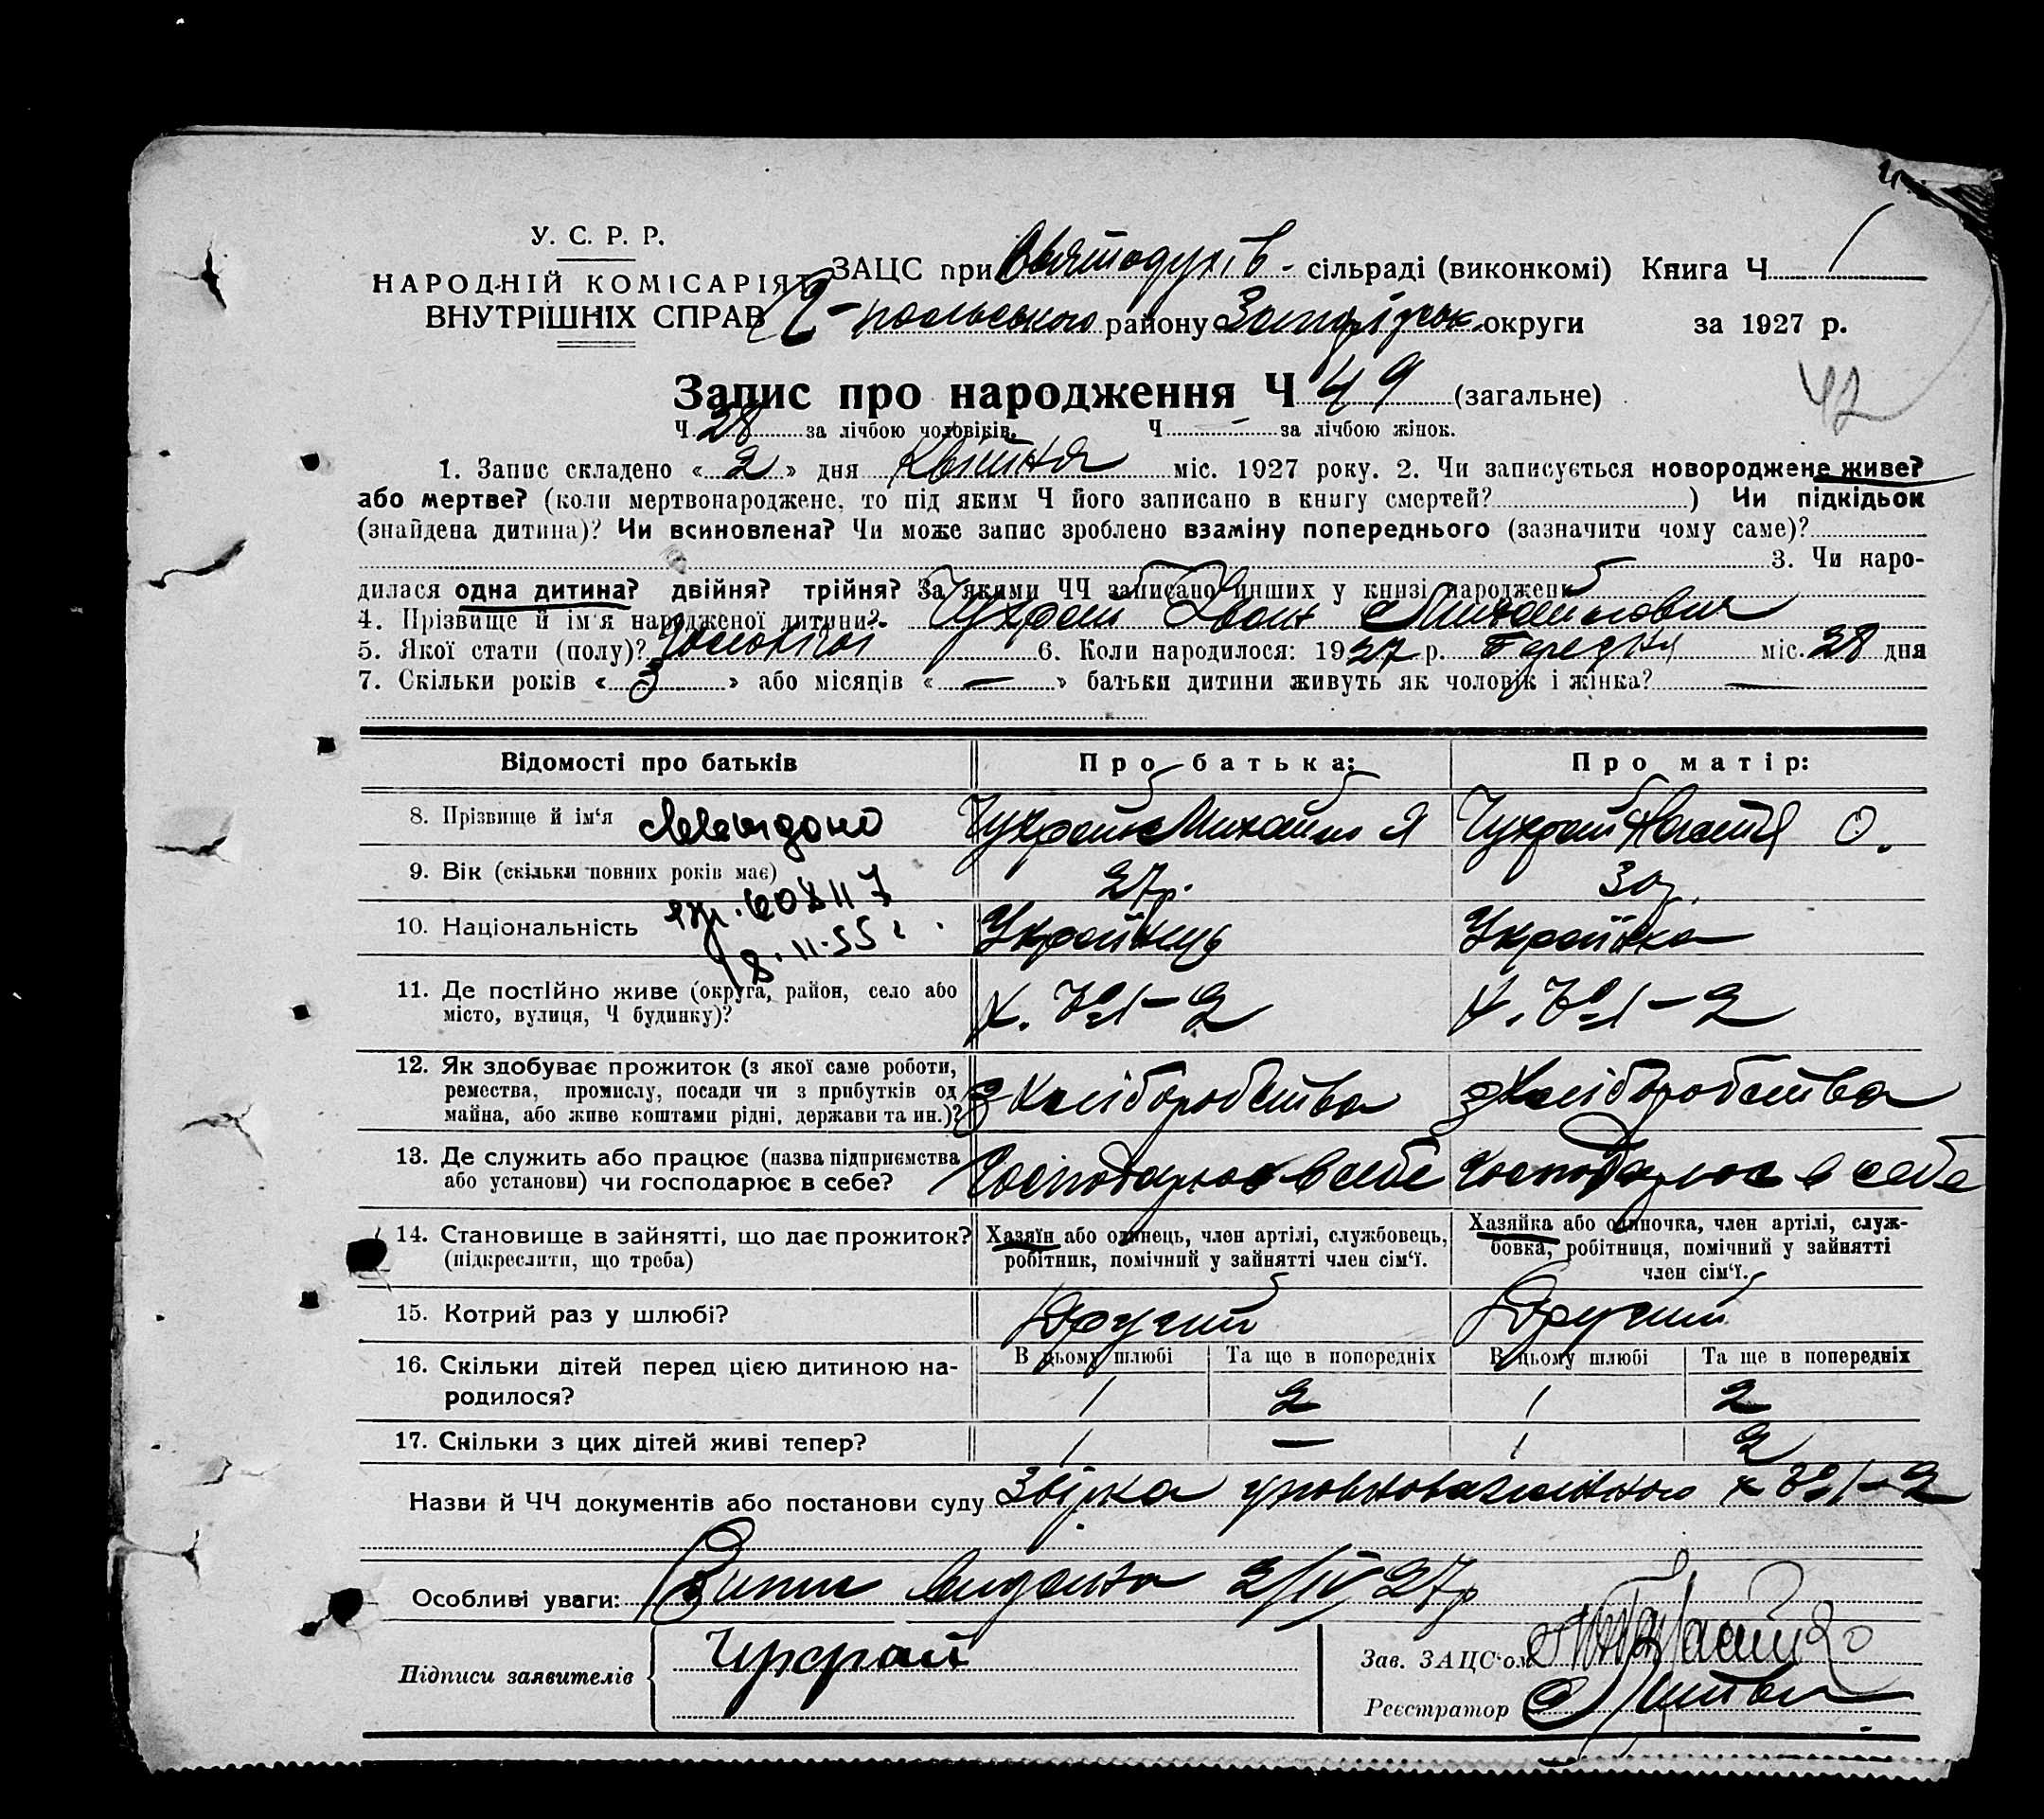 У. С. Р. Р.
НАРОДНІЙ КОМІСАРІЯТ
ВНУТРІШНІХ СПРАВ
ЗАЦС при Святодухів- сільраді (виконкомі) Книга Ч. 1
району Запоріськ. округи за 1927 р.
Запис про народження Ч 49 (загальне)
42
Ч. 28 за лічбою чоловіків. Ч. — за лічбою жінок.
1. Запис складено « 2 » дня Квітня міс. 1927 року. 2. Чи записується новороджене живе?
або мертве? (коли мертвонароджене, то під яким Ч його записано в книгу смертей? ) Чи підкідьок
(знайдена дитина)? Чи всиновлена? Чи може запис зроблено взаміну попереднього (зазначити чому саме)?
3. Чи наро-
дилася одна дитина? двійня? трійня? За якими ЧЧ записано инших у книзі народжень
4. Прізвище й ім'я народженої дитини? Чухрай Іван Михайлович
5. Якої стати (полу)? чоловічої 6. Коли народилося: 1927 р. Березня міс. 28 дня
7. Скільки років « 3 » або місяців « — » батьки дитини живуть як чоловік і жінка? —
Відомості про батьків Про батька: Про матір:
8. Прізвище й ім'я Чухрай Михайло Я Чухрай О.
9. Вік (скільки повних років має) 27р. 30р.
10. Національність Украйінець Украйінка
8.11.55 г.
11. Де постійно живе (округа, район, село або
місто, вулиця, Ч будинку)? х. №1-2 х. №1-2
12. Як здобуває прожиток (з якої саме роботи,
ремества, промислу, посади чи з прибутків од
майна, або живе коштами рідні, держави та ин.)? З хліборобства з хліборобства
13. Де служить або працює (назва підприємства
або установи) чи господарює в себе? Господарює в себе господарює в себе
14. Становище в зайнятті, що дає прожиток?
(підкреслити, що треба)
Хазяїн або одинець, член артілі, службовець,
робітник, помічний у зайнятті член сім'ї.
Хазяйка або одиночка, член артілі, служ-
бовка, робітниця, помічний у зайнятті
член сім'ї.
15. Котрий раз у шлюбі? Другий Другий
16. Скільки дітей перед цією дитиною на-
родилося?
В цьому шлюбі Та ще в попередніх В цьому шлюбі Та ще в попередніх
1 2 1 2
17. Скільки з цих дітей живі тепер? 1 — 1 2
Назви й ЧЧ документів або постанови суду Звірка уповноваженного х №1-2
Особливі уваги: видана 2/IV 27р
Підписи заявителів Чухрай
Зав. ЗАЦС'ом
Реєстратор